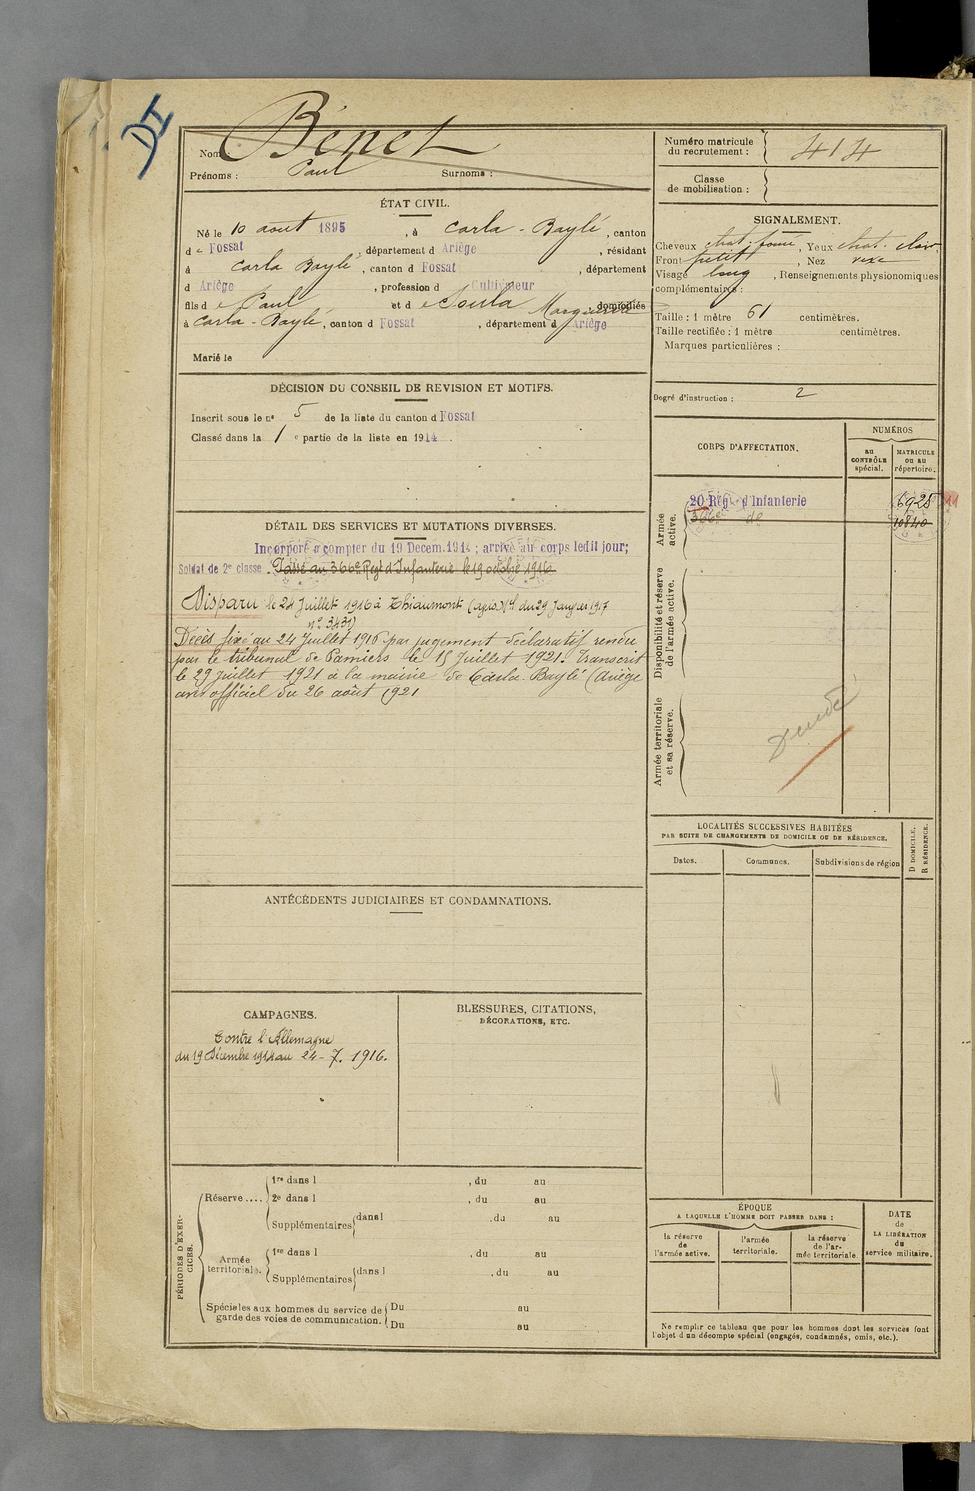 DI
Nom : Bénet
Prénoms : Paul Surnoms :
ÉTAT CIVIL.
Né le 10 aout 1895, à Carla-Baylé, canton
d e Fossat, département d Ariège, résidant
à Carla Baylé, canton d Fossat, département
d Ariège, profession d Cultivateur
fils de Paul et de Soula Marguerite domiciliés
à Carla-Baylé, canton d Fossat, département d Ariège
Marié le
DÉCISION DU CONSEIL DE REVISION ET MOTIFS.
Inscrit sous le nº 5 de la liste du canton d Fossat
Classé dans la 1 e partie de la liste en 1914.
DÉTAIL DES SERVICES ET MUTATIONS DIVERSES.
Incorporé à compter du 19 Decem. 1914 ; arrivé au corps ledit jour;
Soldat de 2e classe. Passé au 366e Regt d'Infanterie le 19 octobre 1916
Disparu le 24 Juillet 1916 à Thiaumont (avis M du 29 Janvier 1917
nº 3431)
Décès fixé au 24 Juillet 1916 par jugement déclaratif rendu
par le tribunal de Pamiers le 15 Juillet 1921. Transcrit
le 29 juillet 1921 à la mairie de Carla-Baylé (Ariège
avis officiel du 26 août 1921
ANTÉCÉDENTS JUDICIAIRES ET CONDAMNATIONS.
CAMPAGNES.
Contre l'Allemagne
du 19 Décembre 1914 au 24-7. 1916.
BLESSURES, CITATIONS,
DÉCORATIONS, ETC.
PÉRIODES D'EXERCICES.
Réserve ....
1re dans l , du au
2e dans l , du au
Supplémentaires dans l , du au
Armée
territoriale.
1re dans l , du au
Supplémentaires dans l , du au
Spéciales aux hommes du service de
garde des voies de communication.
Du au
Du au
Numéro matricule
du recrutement : 414
Classe
de mobilisation :
SIGNALEMENT.
Cheveux chat. foncé, Yeux chat. clair
Front petit, Nez vexe
Visage long, Renseignements physionomiques
complémentaires :
Taille : 1 mètre 61 centimètres.
Taille rectifiée : 1 mètre centimètres.
Marques particulières :
Degré d'instruction : 2
CORPS D'AFFECTATION.
NUMÉROS
au
CONTRÔLE
spécial.
MATRICULE
OU AU
répertoire.
Armée
active.
20 Reg d'Infanterie 6925
366e de 10840
Disponibilité et réserve
de l'armée active.
Armée territoriale
et sa réserve.
LOCALITÉS SUCCESSIVES HABITÉES
PAR SUITE DE CHANGEMENTS DE DOMICILE OU DE RÉSIDENCE.
D DOMICILE.
R RÉSIDENCE.
Dates. Communes. Subdivisions de région
ÉPOQUE
A LAQUELLE L'HOMME DOIT PASSER DANS :
la réserve
de
l'armée active.
l'armée
territoriale.
la réserve
de l'ar-
mée territoriale.
DATE
de
LA LIBÉRATION
du
service militaire.
Ne remplir ce tableau que pour les hommes dont les services font
l'objet d'un décompte spécial (engagés, condamnés, omis, etc.).